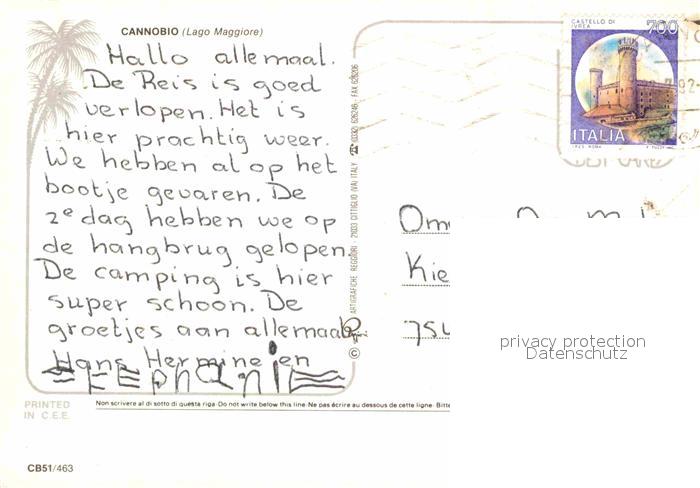 CANNOBIO (Lago Maggiore)
Hallo allemaal.
De Reis is goed
verlopen. Het is
hier prachtig weer.
We hebben al op het
bootje gevaren. De
2e dag hebben we op
de hangbrug gelopen.
De camping is hier
super schoon. De
groetjes aan allemaal.
Hans Hermine en
Stephanie
PRINTED
IN C.E.E.
CB51/463
Non scrivere al di sotto di questa riga Do not write below this line Ne pas écrire au dessous de cette ligne Bitte
© ARTIGRAFICHE REGGIORI - 21033 CITTIGLIO (VA) ITALY
CASTELLO DI
IVREA
700
ITALIA
92
Om
Kie
754
privacy protection
Datenschutz